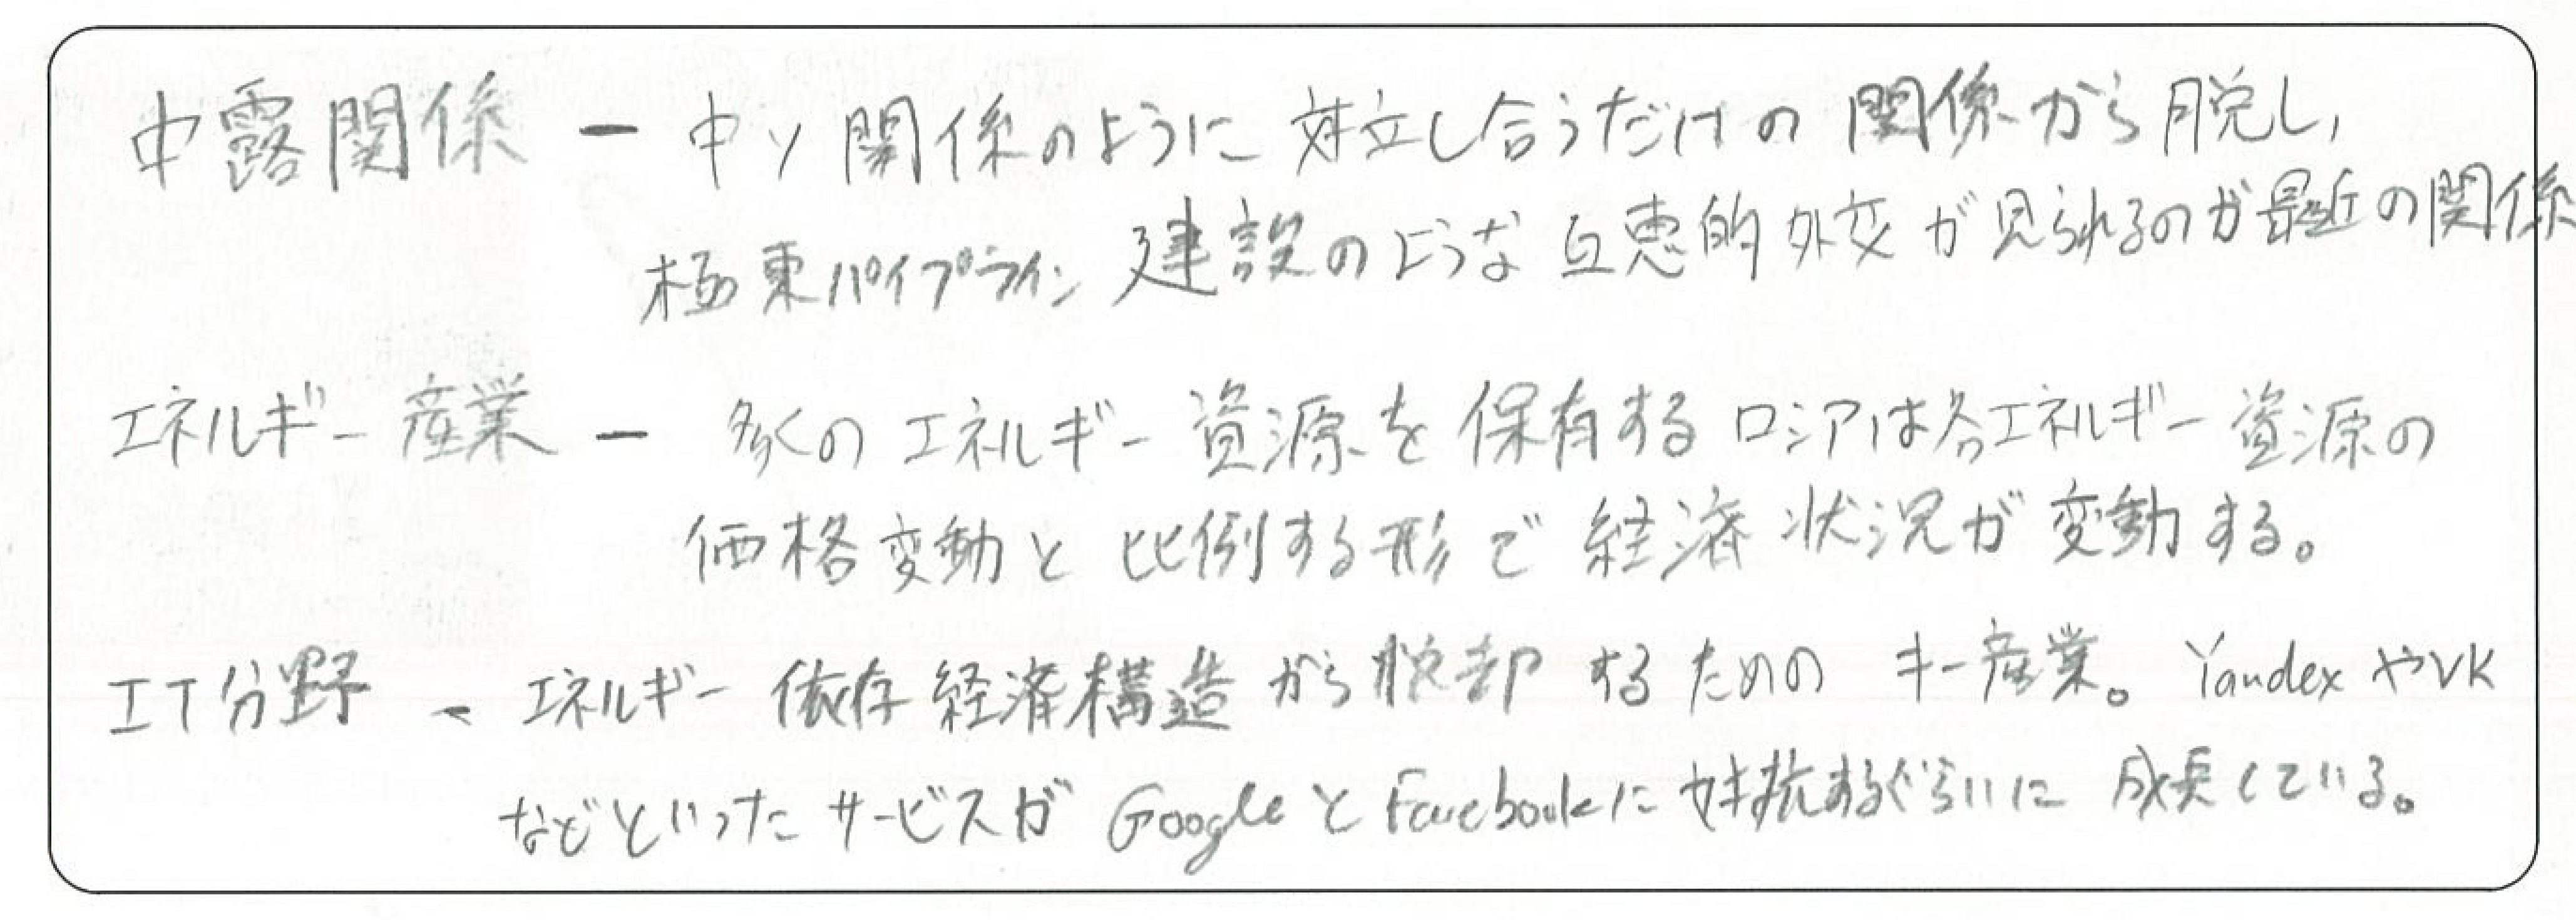 中露関係 ー 中ソ関係のように対立し合うだけの関係から脱し,
極東パイプライン建設のような互恵的外交が見られるのが最近の関係
エネルギー産業 ー 多くのエネルギー資源を保有するロシアは各エネルギー資源の
価格変動と比例する形で経済状況が変動する。
IT分野 - エネルギー依存経済構造から脱却するためのキー産業。YandexやVK
などといったサービスがGoogleとFacebookに対抗するぐらいに成長している。